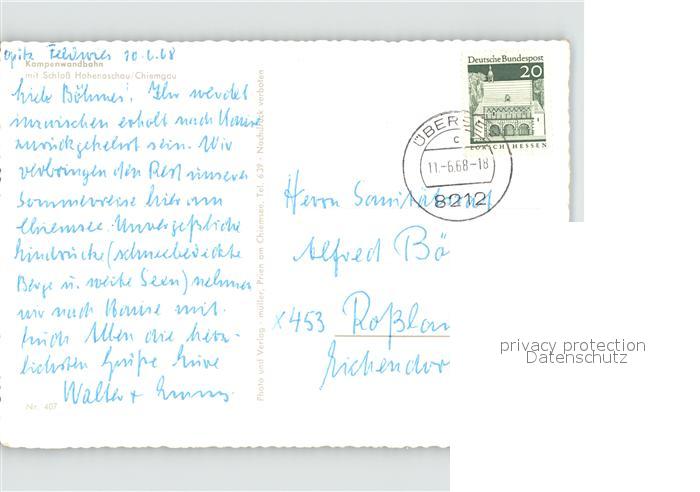 Feldwies 10.6.68
Kampenwandbahn
mit Schloß Hohenaschau/Chiemgau
Liebe Böhmes! Ihr werdet
inzwischen erholt nach Hause
zurückgekehrt sein. Wir
verbringen den Rest unserer
Sommerreise hier am
Chiemsee. Unvergeßliche
Eindrücke (schneebedeckte
Berge u. weite Seen) nehmen
wir nach Hause mit.
Euch Allen die herz-
lichsten Grüße Eure
Walter +
Nr. 407
Photo und Verlag müller, Prien am Chiemsee, Tel. 639 - Nachdruck verboten
Deutsche Bundespost
20
LORSCH HESSEN
ÜBERSEE
c
11.-6.68-18
8212
Herrn Sanitätsrat
Alfred Bö
x 453 Roßlau
Eichendor
privacy protection
Datenschutz